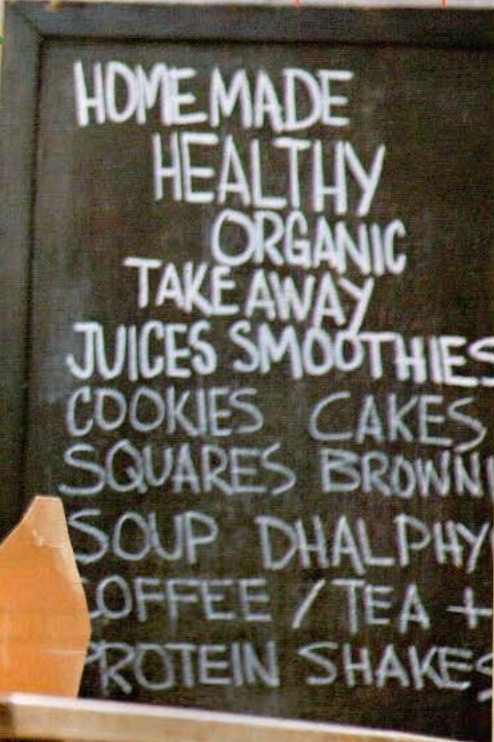 HOMEMADE
HEALTHY
ORGANIC
TAKE AWAY
JUICES SMOOTHIES
COOKIES CAKES
SQUARES BROWNI
SOUP DHALPHY
COFFEE / TEA +
PROTEIN SHAKES